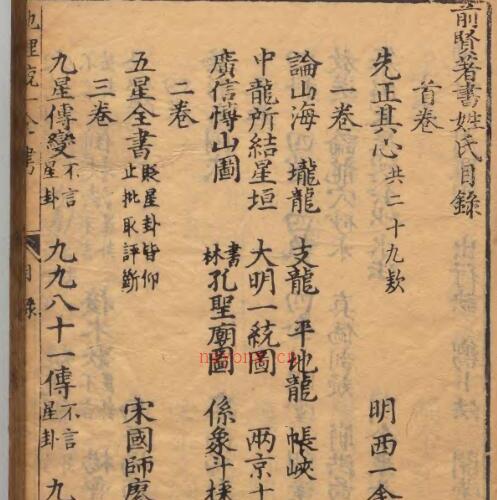 前賢著書姓氏目錄
首卷
先正其心 共二十九款 明西一
一卷
論山海 壠龍 支龍 平地龍 帳峽
中龍所結星垣 大明一統圖 兩京十
廣信博山圖 書林孔聖廟圖 係象斗採
二卷
五星全書 貶星卦皆仰止批取評斷 宋國師廖
三卷
九星傳變 不言星卦 九九八十一傳 不言星卦 九
地理統一全書 目錄